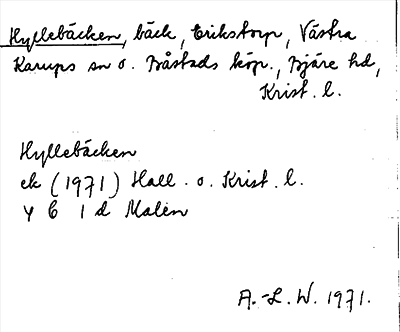 Hyllebäcken, bäck, Erikstorp, Västra
Karups sn o. Båstads köp., Bjäre hd,
Krist. l.
Hyllebäcken
ek (1971) Hall. o. Krist. l.
4 C 1 d Malen
A.-L. W. 1971.